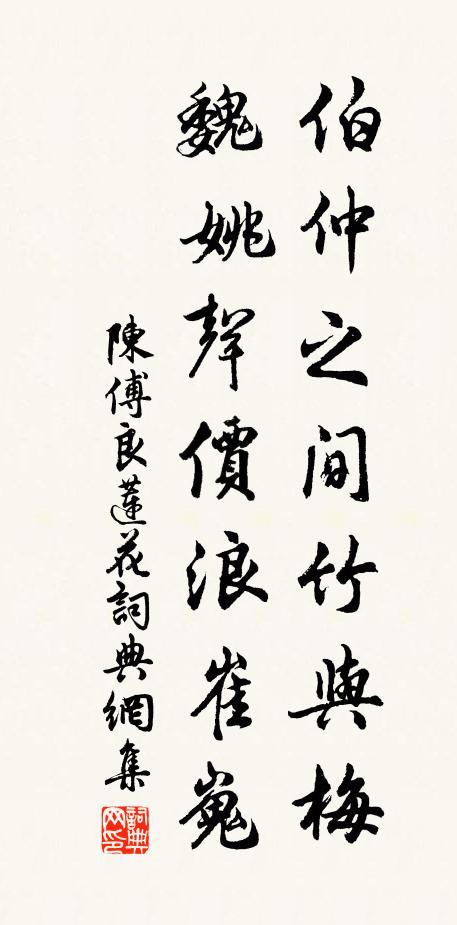 伯仲之間竹與梅
魏姚聲價浪崔嵬
陳傅良蓮花詞典網集
詞典網印